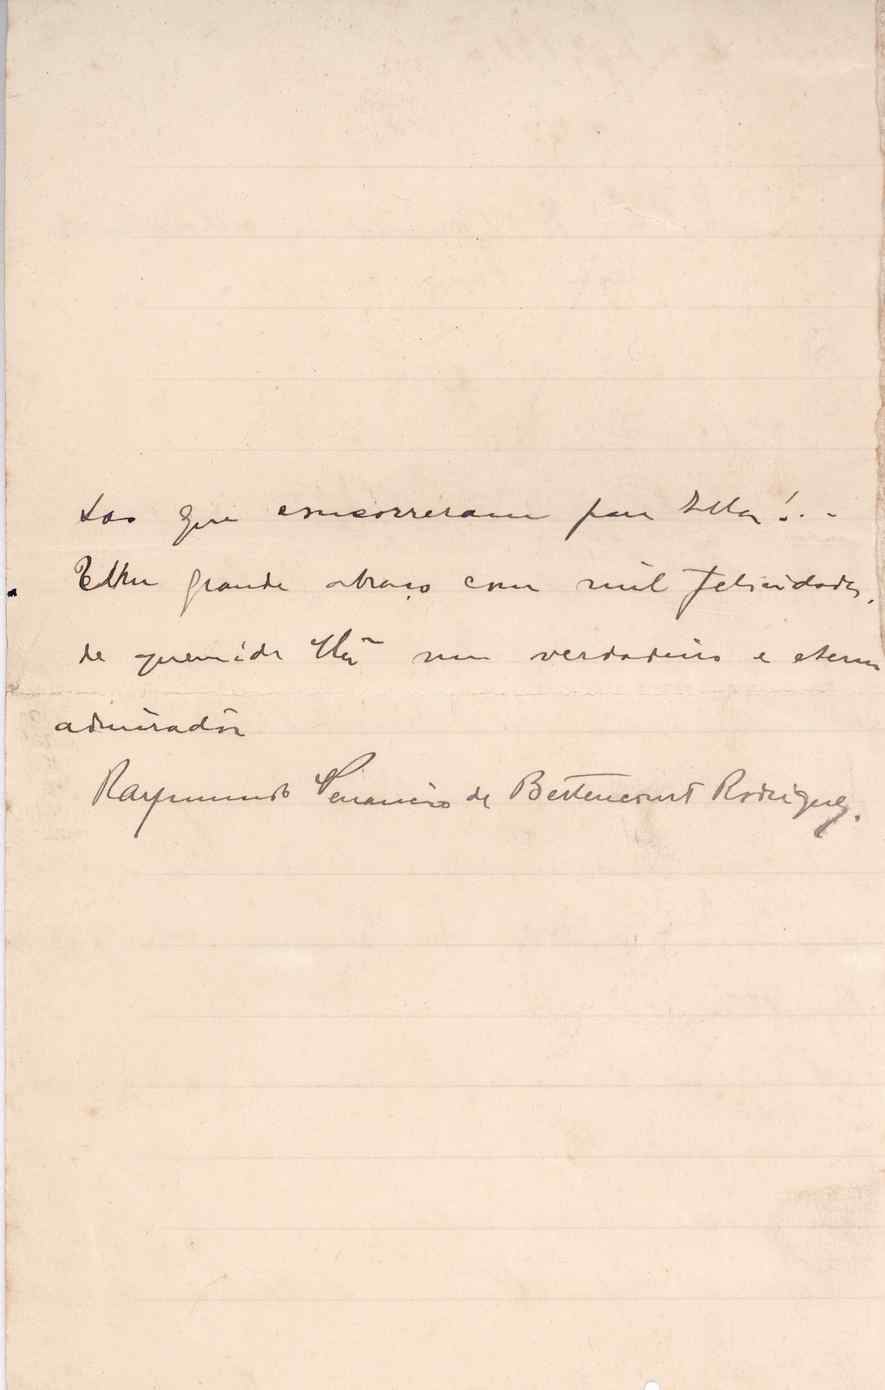 tos que concorreram para Ella!..
Um grande abraço com mil felicidades,
de querida um verdadeiro e eterno
admirador
Raymundo Venancio de Bettencourt Rodrigues.